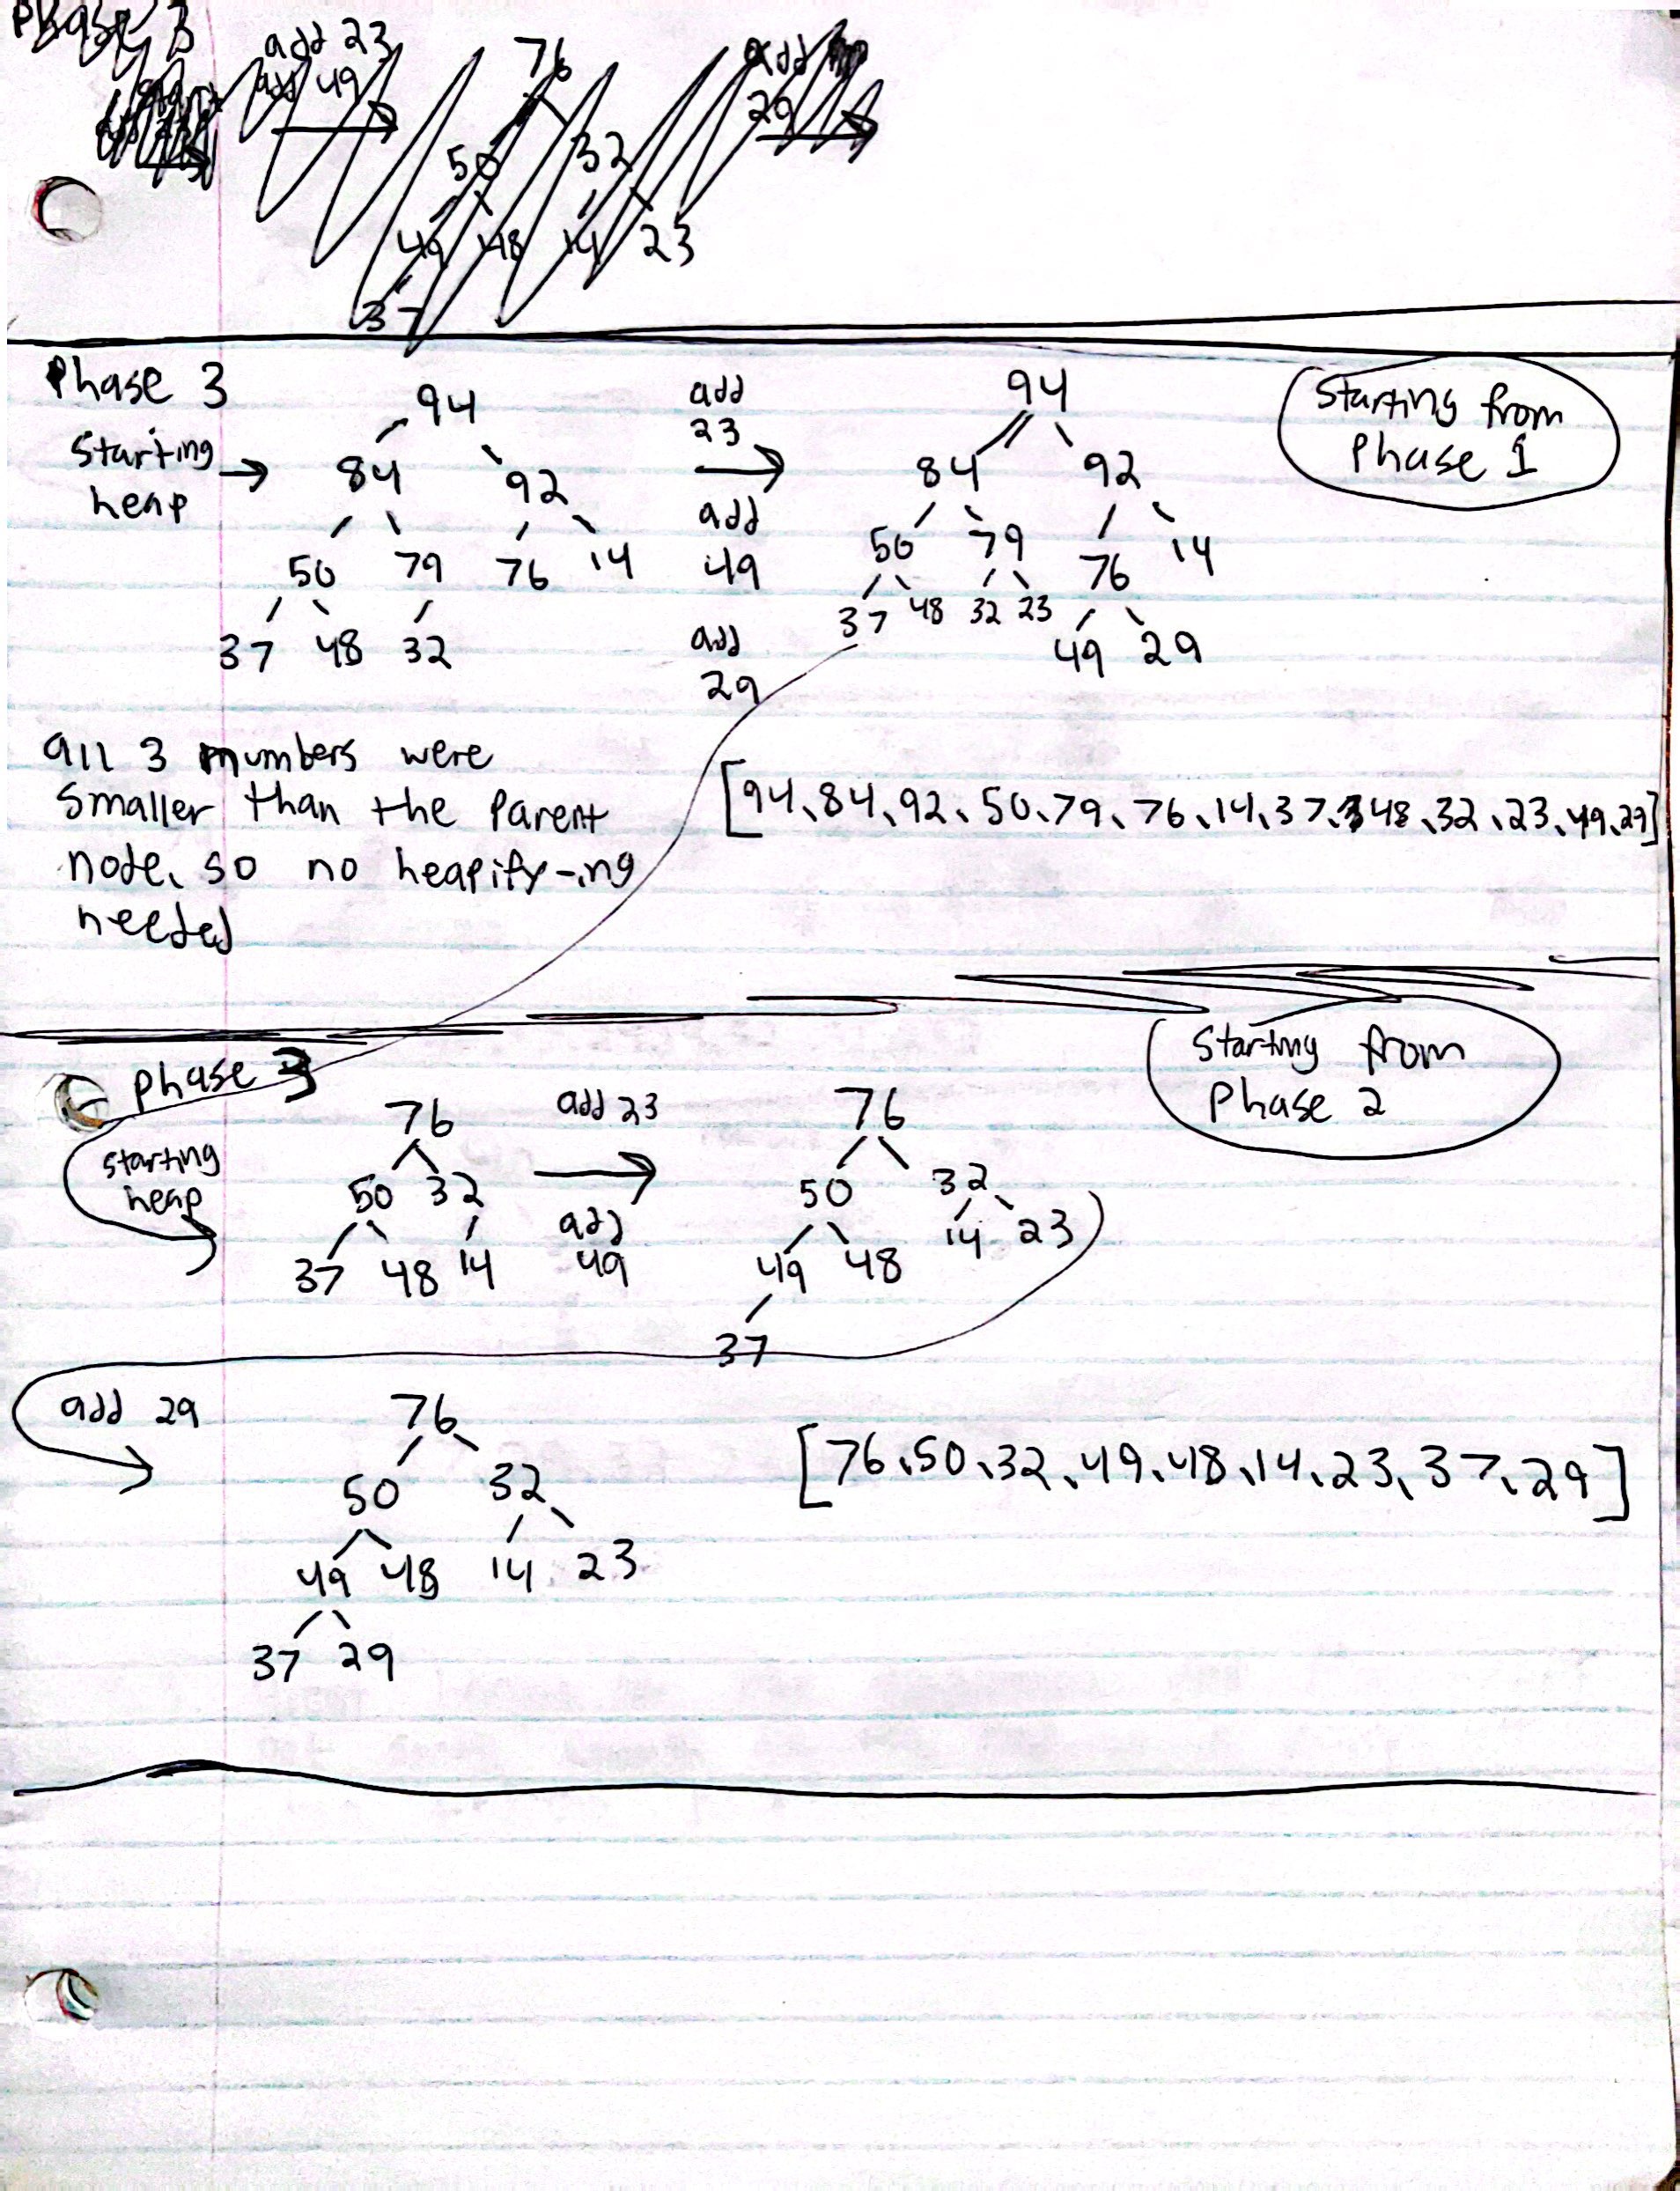 Phase 3
add 23
add 49
76
add
29
50 32
49 48 14 23
37
Phase 3
Starting heap →
94
84 92
50 79 76 14
37 48 32
add 23
add 49
add 29
94
84 92
50 79 76 14
37 48 32 23 49 29
Starting from
Phase 1
all 3 numbers were
smaller than the parent
node, so no heapify-ing
needed
[94, 84, 92, 50, 79, 76, 14, 37, 48, 32, 23, 49, 29]
Starting from
Phase 2
Phase 3
starting
heap
76
50 32
37 48 14
add 23
add 49
76
50 32
49 48 14 23
37
add 29
76
50 32
49 48 14 23
37 29
[76, 50, 32, 49, 48, 14, 23, 37, 29]